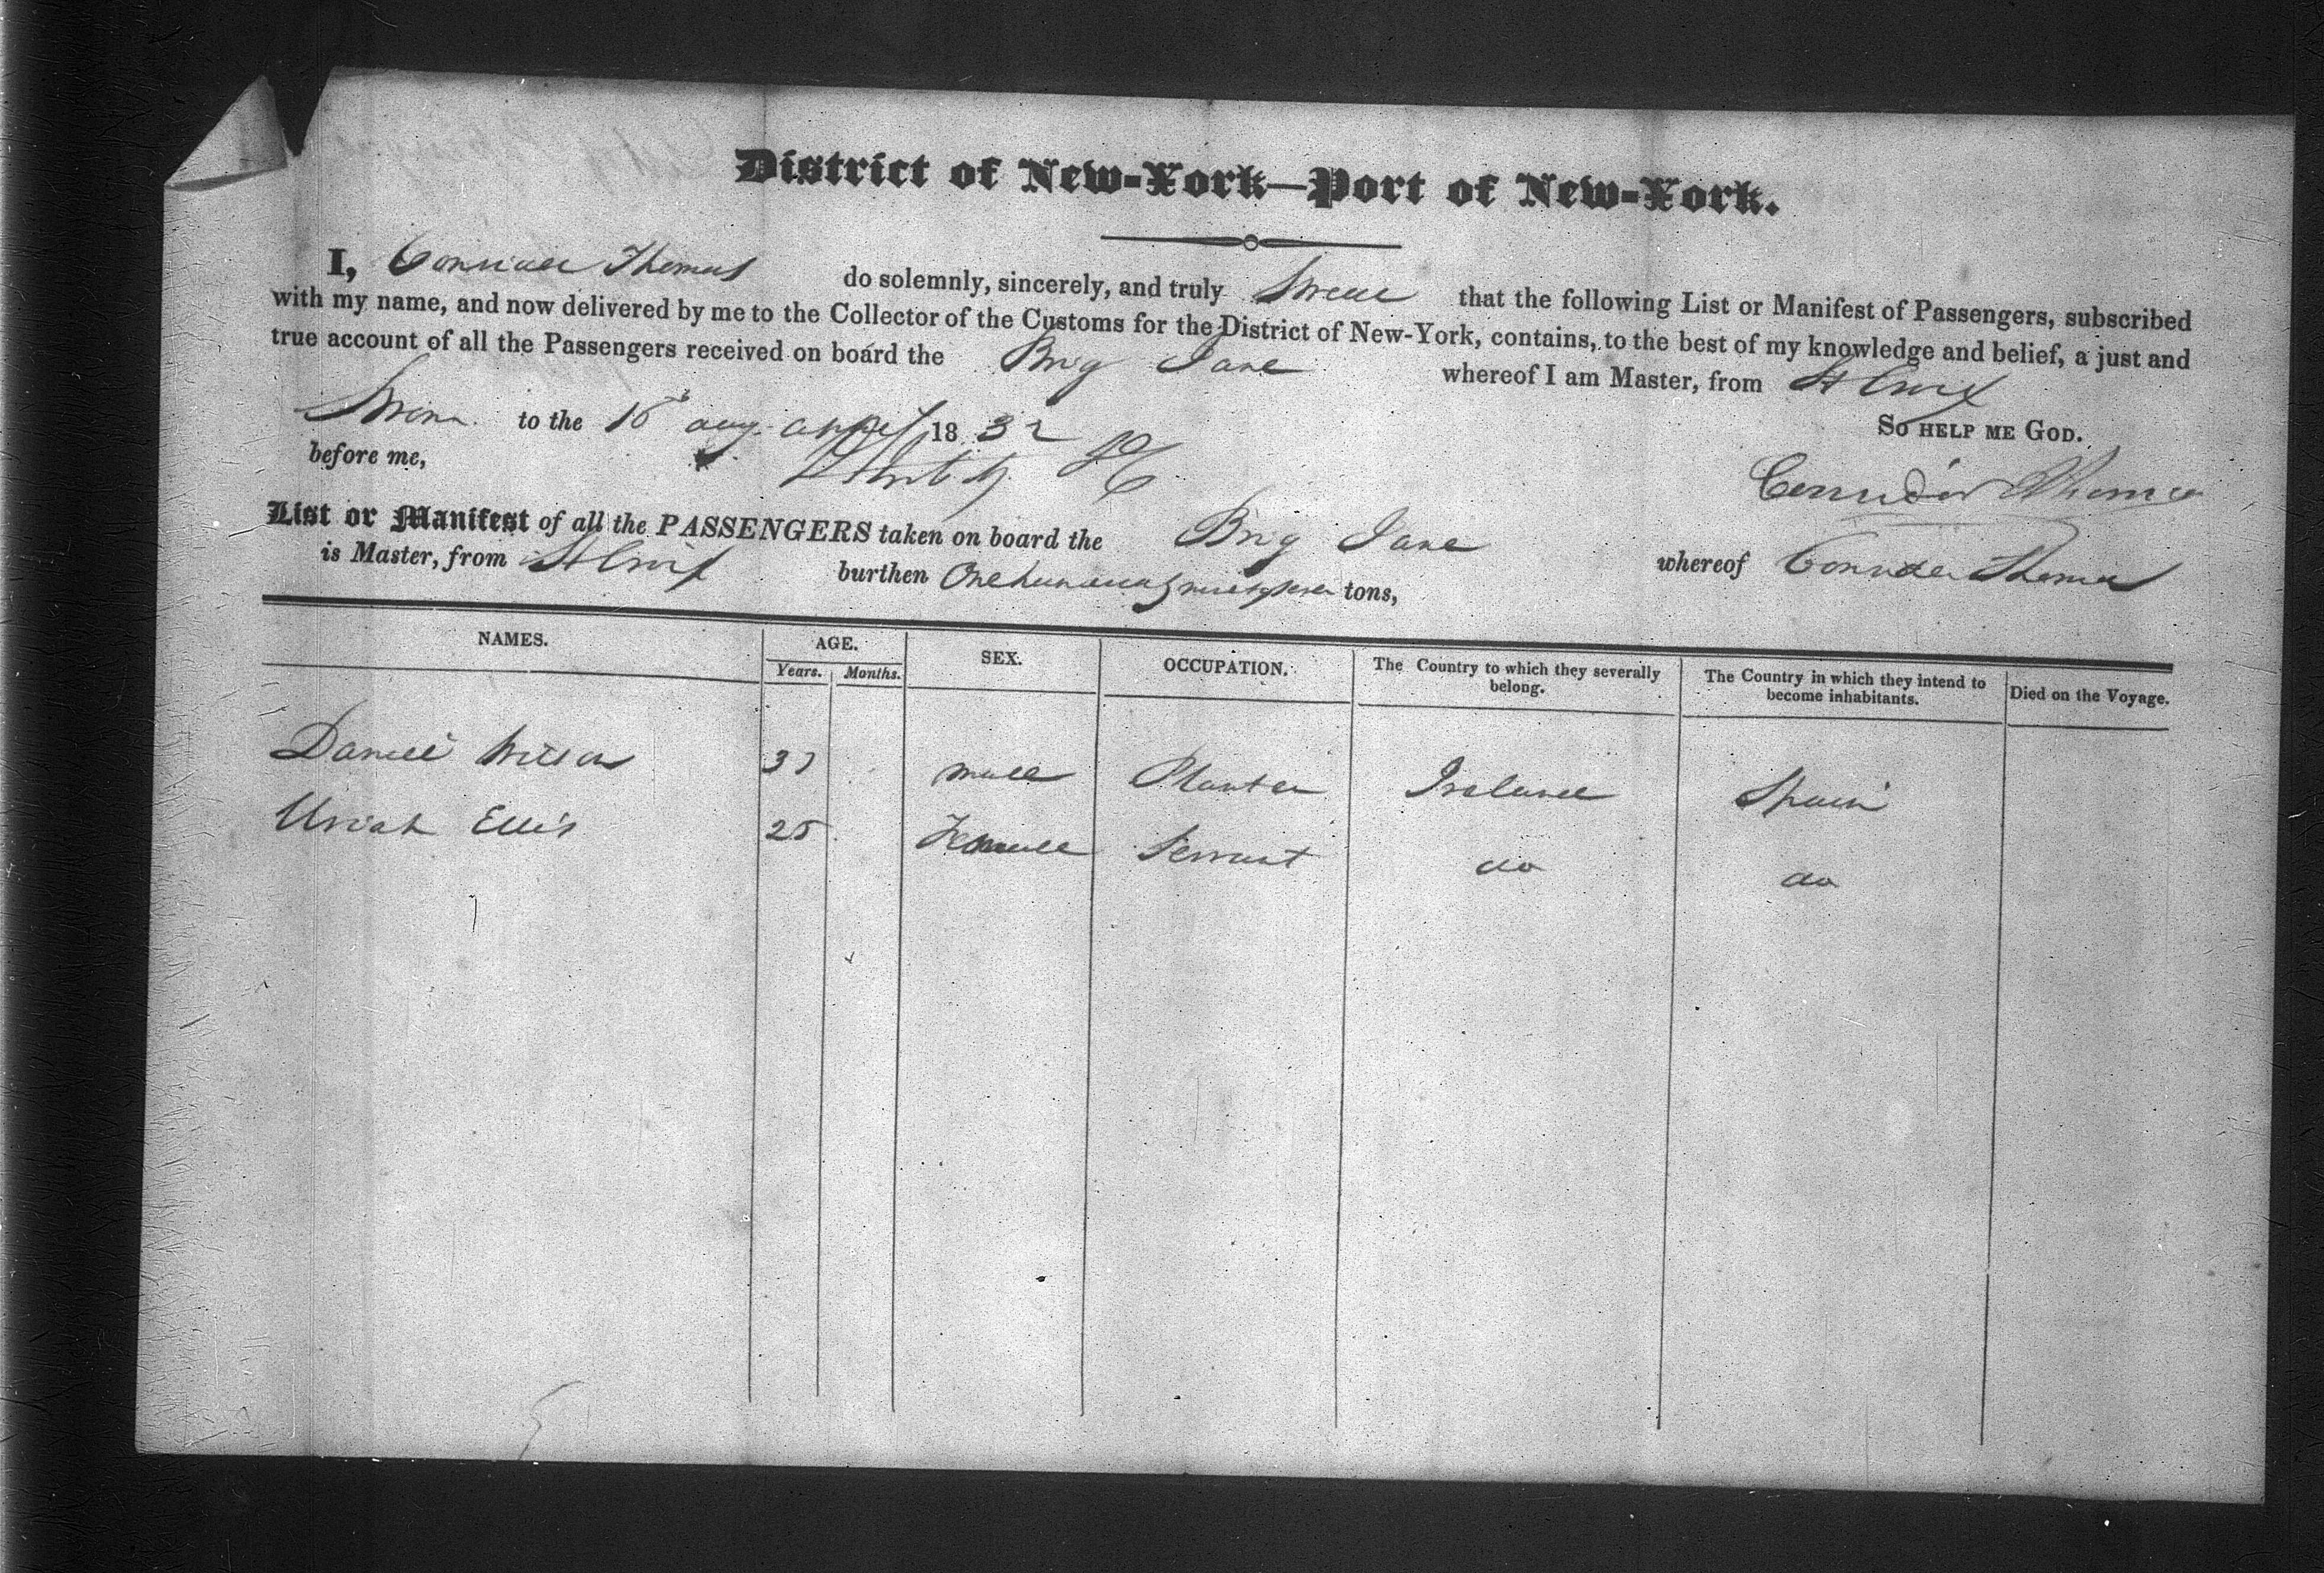 District of New-York—Port of New-York.
I, Thomas do solemnly, sincerely, and truly Swear that the following List or Manifest of Passengers, subscribed
with my name, and now delivered by me to the Collector of the Customs for the District of New-York, contains, to the best of my knowledge and belief, a just and
true account of all the Passengers received on board the Brig Jane whereof I am Master, from St Croix
Sworn to the 18 32 So HELP ME GOD.
before me,
List or Manifest of all the PASSENGERS taken on board the Brig Jane whereof Thomas
is Master, from St Croix burthen One hundred ninety seven tons,
NAMES. AGE. SEX. OCCUPATION. The Country to which they severally belong. The Country in which they intend to become inhabitants. Died on the Voyage.
Years. Months.
Daniel Wilson 37 male Planter Ireland Spain
Uriah Ellis 25 Female Servant do do